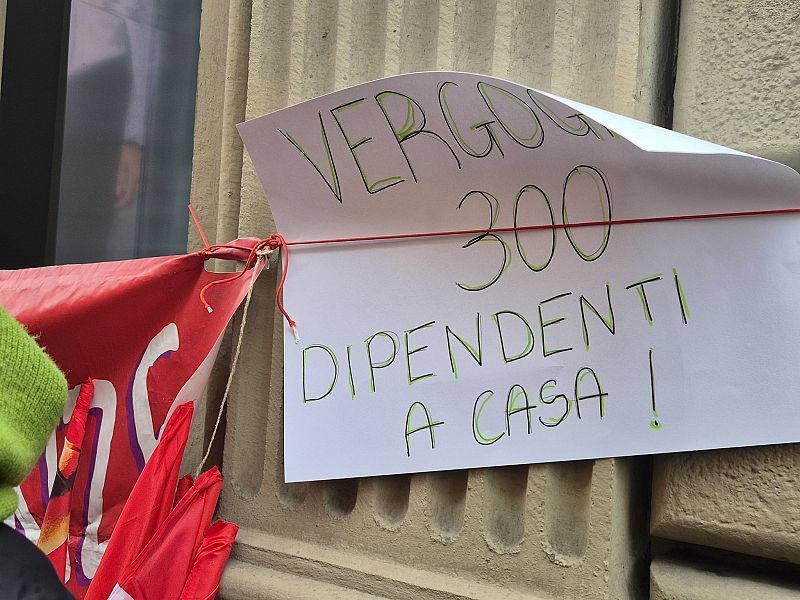 VERGOG
300
DIPENDENTI
A CASA!